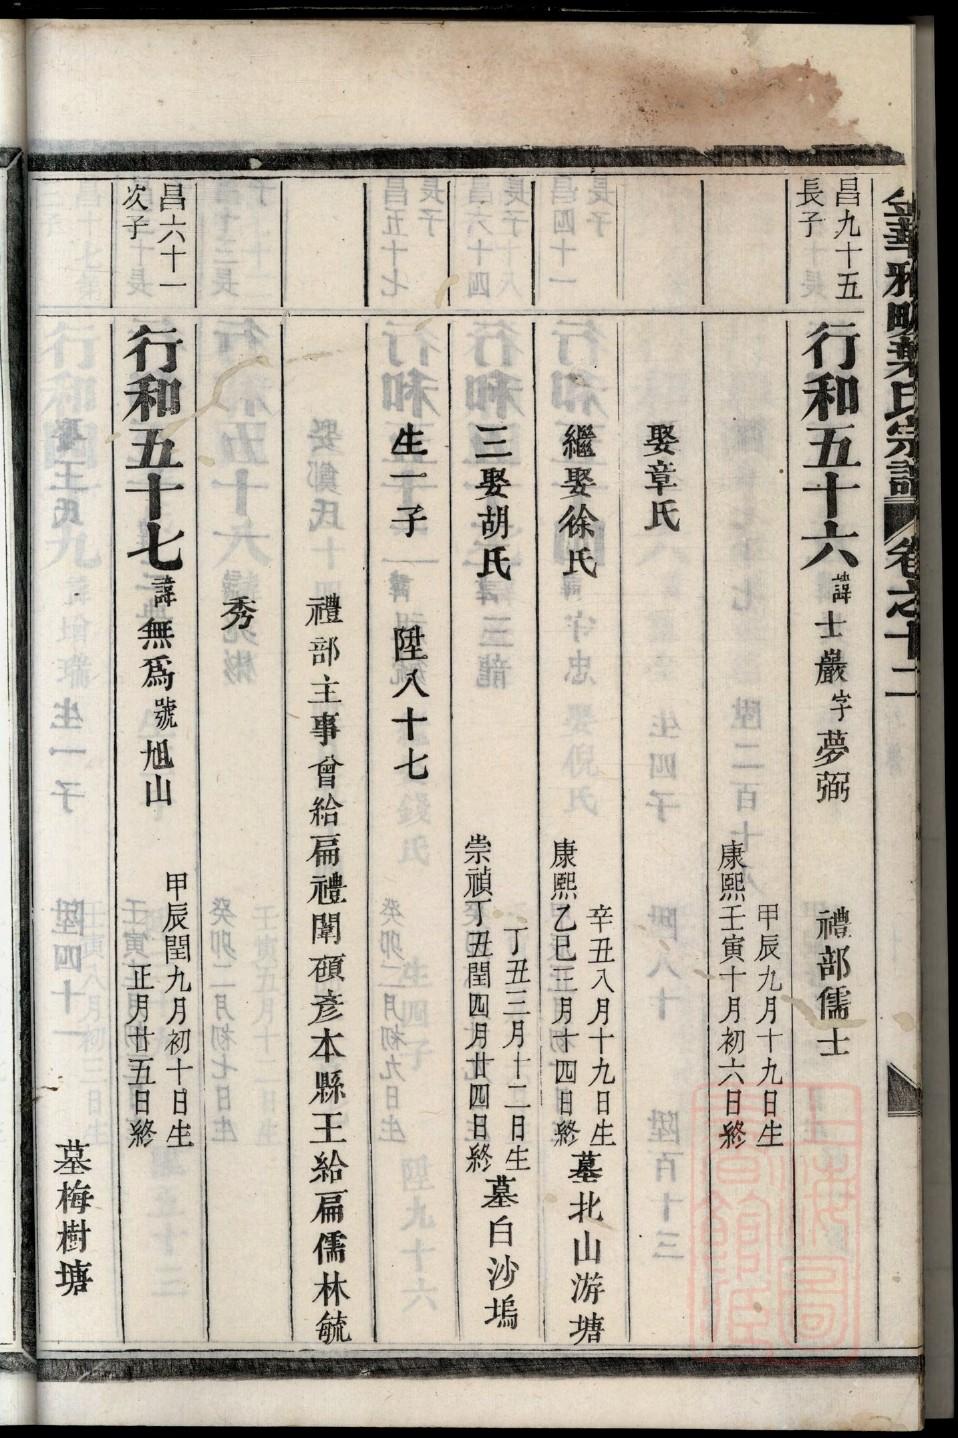 金華雅畈葉氏宗譜 卷之十二
昌九十五
長子
行和五十六 諱士嚴字夢弼 禮部儒士
甲辰九月十九日生
康熙壬寅十月初六日終
娶章氏
繼娶徐氏
辛丑八月十九日生
康熙乙巳正月十四日終
墓北山游塘
三娶胡氏
丁丑三月十二日生
崇禎丁丑閏四月廿四日終
墓白沙塢
生一子 陞八十七
禮部主事曾給扁禮闈碩彥本縣王給扁儒林毓
秀
昌六十一
次子
行和五十七 諱無為號旭山
甲辰閏九月初十日生
正月廿五日終
墓梅樹塘